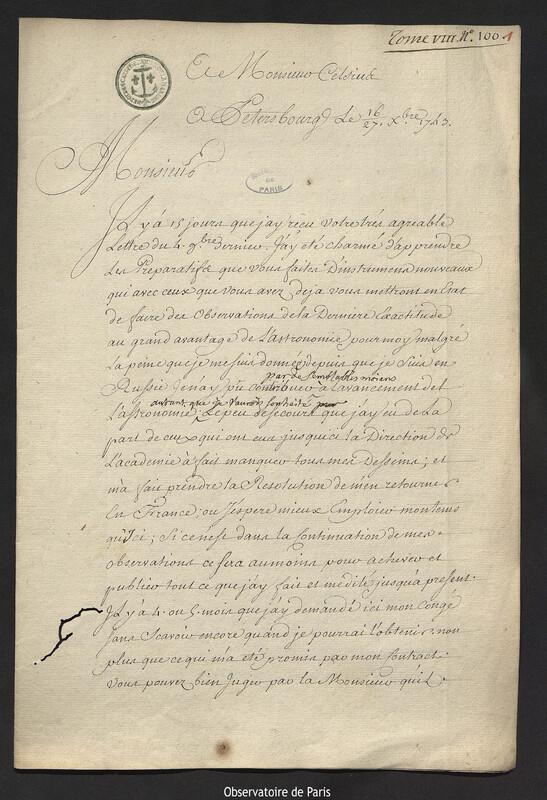 Tome VIII. N.° 100 1
A Monsieur Celsius
A Petersbourg Le 16/27. Xbre 1743.
Monsieur
DE PARIS
Il y à 15 jours que jay reçu votre trés agreable
Lettre du 4. 9bre Dernier. J'ay été charmé d'apprendre
Les Preparatifs que vous faites D'instrumens nouveaux
qui avec ceux que vous avez deja vous mettront en Etat
de faire des Observations de la Derniere Exactitude
au grand avantage de L'astronomie pour moy malgré
La peine que je me suis donneé depuis que je Suis en
par de semblables moiens
Russie Jenay pû contribuer à Lavancement de
autant que je l'aurois souhaité
L'astronomie. Le peu de secours que jay eu de La
part de ceux qui ont eu jusquici La Direction de
L'academie à fait manquer tous mes Desseins; et
m'a fait prendre la Resolution de m'en retourner
En France; ou Jespere mieux Emploier mon tems
qu'Ici; Si ce nest dans la Continuation de mes
observations ce sera au moins pour achever et
publier tout ce que jay fait et medité jusqu'a present.
Il y à 4. ou 5. mois que jay demandé ici mon Congé
sans Scavoir encore quand je pourrai l'obtenir. non
plus que ce qui m'a eté promis par mon Contract.
Vous pouvez bien Juger par la Monsieur qu'il
Observatoire de Paris